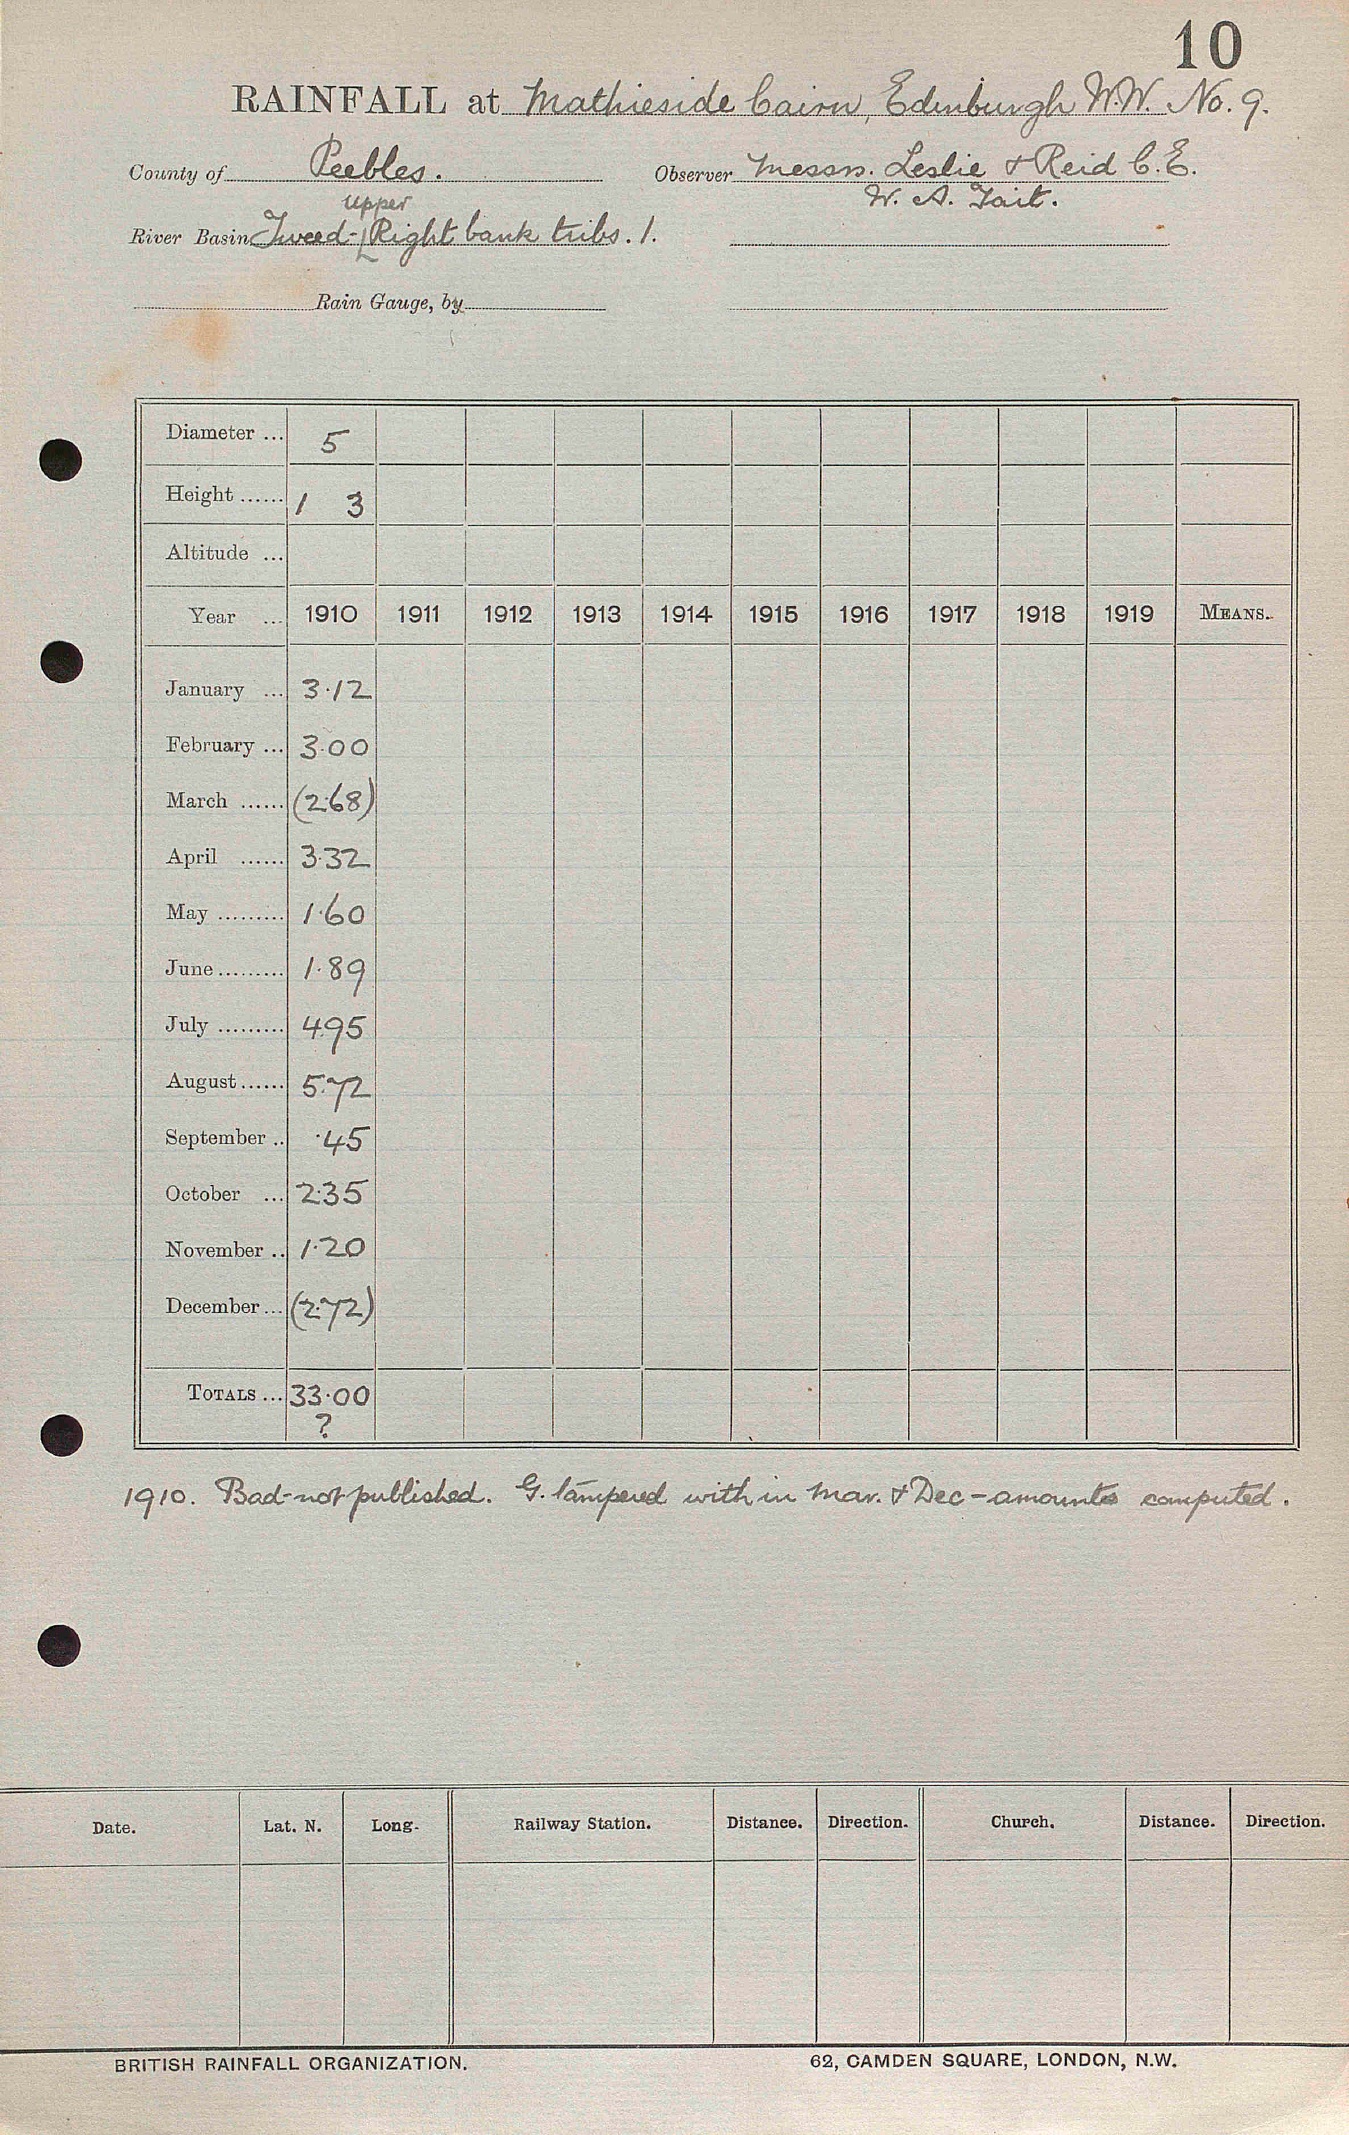 10
RAINFALL at Mathieside Cairn, Edinburgh W.W. No. 9.
County of Peebles. Observer Messrs. Leslie & Reid C.E.
W. A. Tait.
upper
River Basin Tweed-[Right bank tribs. 1.
Rain Gauge, by
Diameter ... 5
Height ...... 1 3
Altitude ...
Year ... 1910 1911 1912 1913 1914 1915 1916 1917 1918 1919 MEANS.
January ... 3·12
February ... 3·00
March ...... (2·68)
April ...... 3·32
May ......... 1·60
June ......... 1·89
July ......... 4·95
August ...... 5·72
September .. ·45
October ... 2·35
November .. 1·20
December ... (2·72)
TOTALS ... 33·00
?
1910. Bad-not published. G. tampered with in Mar. & Dec - amounts computed.
Date. Lat. N. Long. Railway Station. Distance. Direction. Church. Distance. Direction.
BRITISH RAINFALL ORGANIZATION. 62, CAMDEN SQUARE, LONDON, N.W.